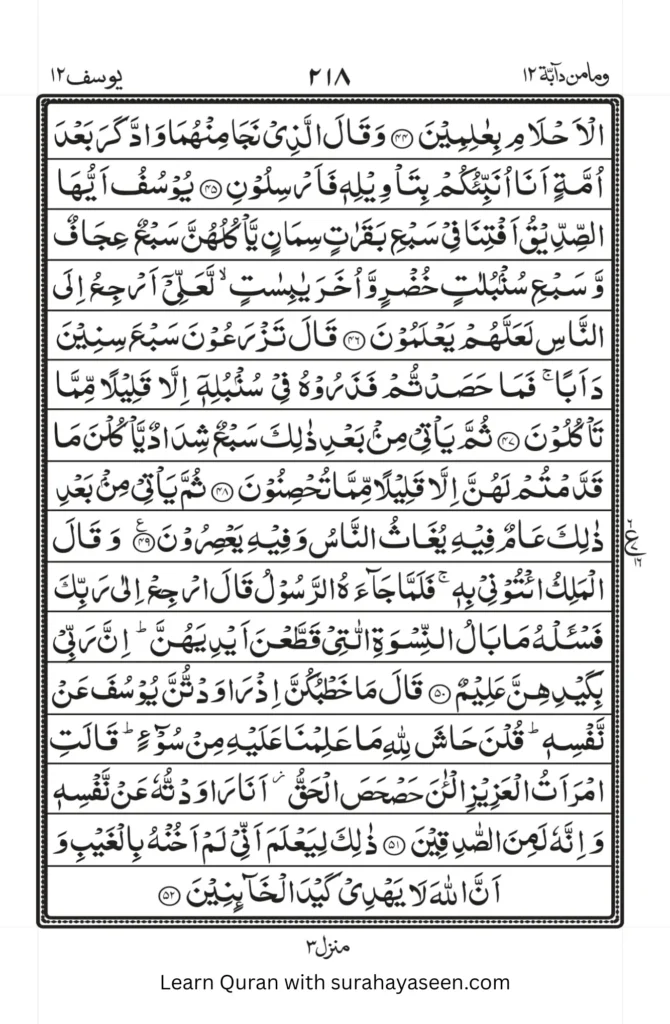 وما من دآبة ١٢ ٢١٨ يوسف ١٢
الۡاَحۡلَامِ بِعٰلِمِيۡنَ ﴿۴۴﴾ وَقَالَ الَّذِىۡ نَجَا مِنۡهُمَا وَادَّكَرَ بَعۡدَ
اُمَّةٍ اَنَا اُنَبِّئُكُمۡ بِتَاۡوِيۡلِهٖ فَاَرۡسِلُوۡنِ ﴿۴۵﴾ يُوۡسُفُ اَيُّهَا
الصِّدِّيۡقُ اَفۡتِنَا فِىۡ سَبۡعِ بَقَرٰتٍ سِمَانٍ يَّاۡكُلُهُنَّ سَبۡعٌ عِجَافٌ
وَّسَبۡعِ سُنۡۢبُلٰتٍ خُضۡرٍ وَّاُخَرَ يٰبِسٰتٍ ۙ لَّعَلِّىۡۤ اَرۡجِعُ اِلَى
النَّاسِ لَعَلَّهُمۡ يَعۡلَمُوۡنَ ﴿۴۶﴾ قَالَ تَزۡرَعُوۡنَ سَبۡعَ سِنِيۡنَ
دَاَبًا ۚ فَمَا حَصَدْتُّمۡ فَذَرُوۡهُ فِىۡ سُنۡۢبُلِهٖۤ اِلَّا قَلِيۡلًا مِّمَّا
تَاۡكُلُوۡنَ ﴿۴۷﴾ ثُمَّ يَاۡتِىۡ مِنۡۢ بَعۡدِ ذٰلِكَ سَبۡعٌ شِدَادٌ يَّاۡكُلۡنَ مَا
قَدَّمۡتُمۡ لَهُنَّ اِلَّا قَلِيۡلًا مِّمَّا تُحۡصِنُوۡنَ ﴿۴۸﴾ ثُمَّ يَاۡتِىۡ مِنۡۢ بَعۡدِ
ذٰلِكَ عَامٌ فِيۡهِ يُغَاثُ النَّاسُ وَفِيۡهِ يَعۡصِرُوۡنَ ﴿۴۹﴾ ع وَقَالَ
الۡمَلِكُ ائۡتُوۡنِىۡ بِهٖ ۚ فَلَمَّا جَآءَهُ الرَّسُوۡلُ قَالَ ارۡجِعۡ اِلٰى رَبِّكَ
فَسۡـَٔلۡهُ مَا بَالُ النِّسۡوَةِ الّٰتِىۡ قَطَّعۡنَ اَيۡدِيَهُنَّ ؕ اِنَّ رَبِّىۡ
بِكَيۡدِهِنَّ عَلِيۡمٌ ﴿۵۰﴾ قَالَ مَا خَطۡبُكُنَّ اِذۡ رَاوَدْتُّنَّ يُوۡسُفَ عَنۡ
نَّفۡسِهٖ ؕ قُلۡنَ حَاشَ لِلّٰهِ مَا عَلِمۡنَا عَلَيۡهِ مِنۡ سُوۡٓءٍ ؕ قَالَتِ
امۡرَاَتُ الۡعَزِيۡزِ الۡـٰٔنَ حَصۡحَصَ الۡحَقُّ ۫ اَنَا رَاوَدْتُّهٗ عَنۡ نَّفۡسِهٖ
وَاِنَّهٗ لَمِنَ الصّٰدِقِيۡنَ ﴿۵۱﴾ ذٰلِكَ لِيَعۡلَمَ اَنِّىۡ لَمۡ اَخُنۡهُ بِالۡغَيۡبِ وَ
اَنَّ اللّٰهَ لَا يَهۡدِىۡ كَيۡدَ الۡخَآئِنِيۡنَ ﴿۵۲﴾
منزل ٣
Learn Quran with surahayaseen.com